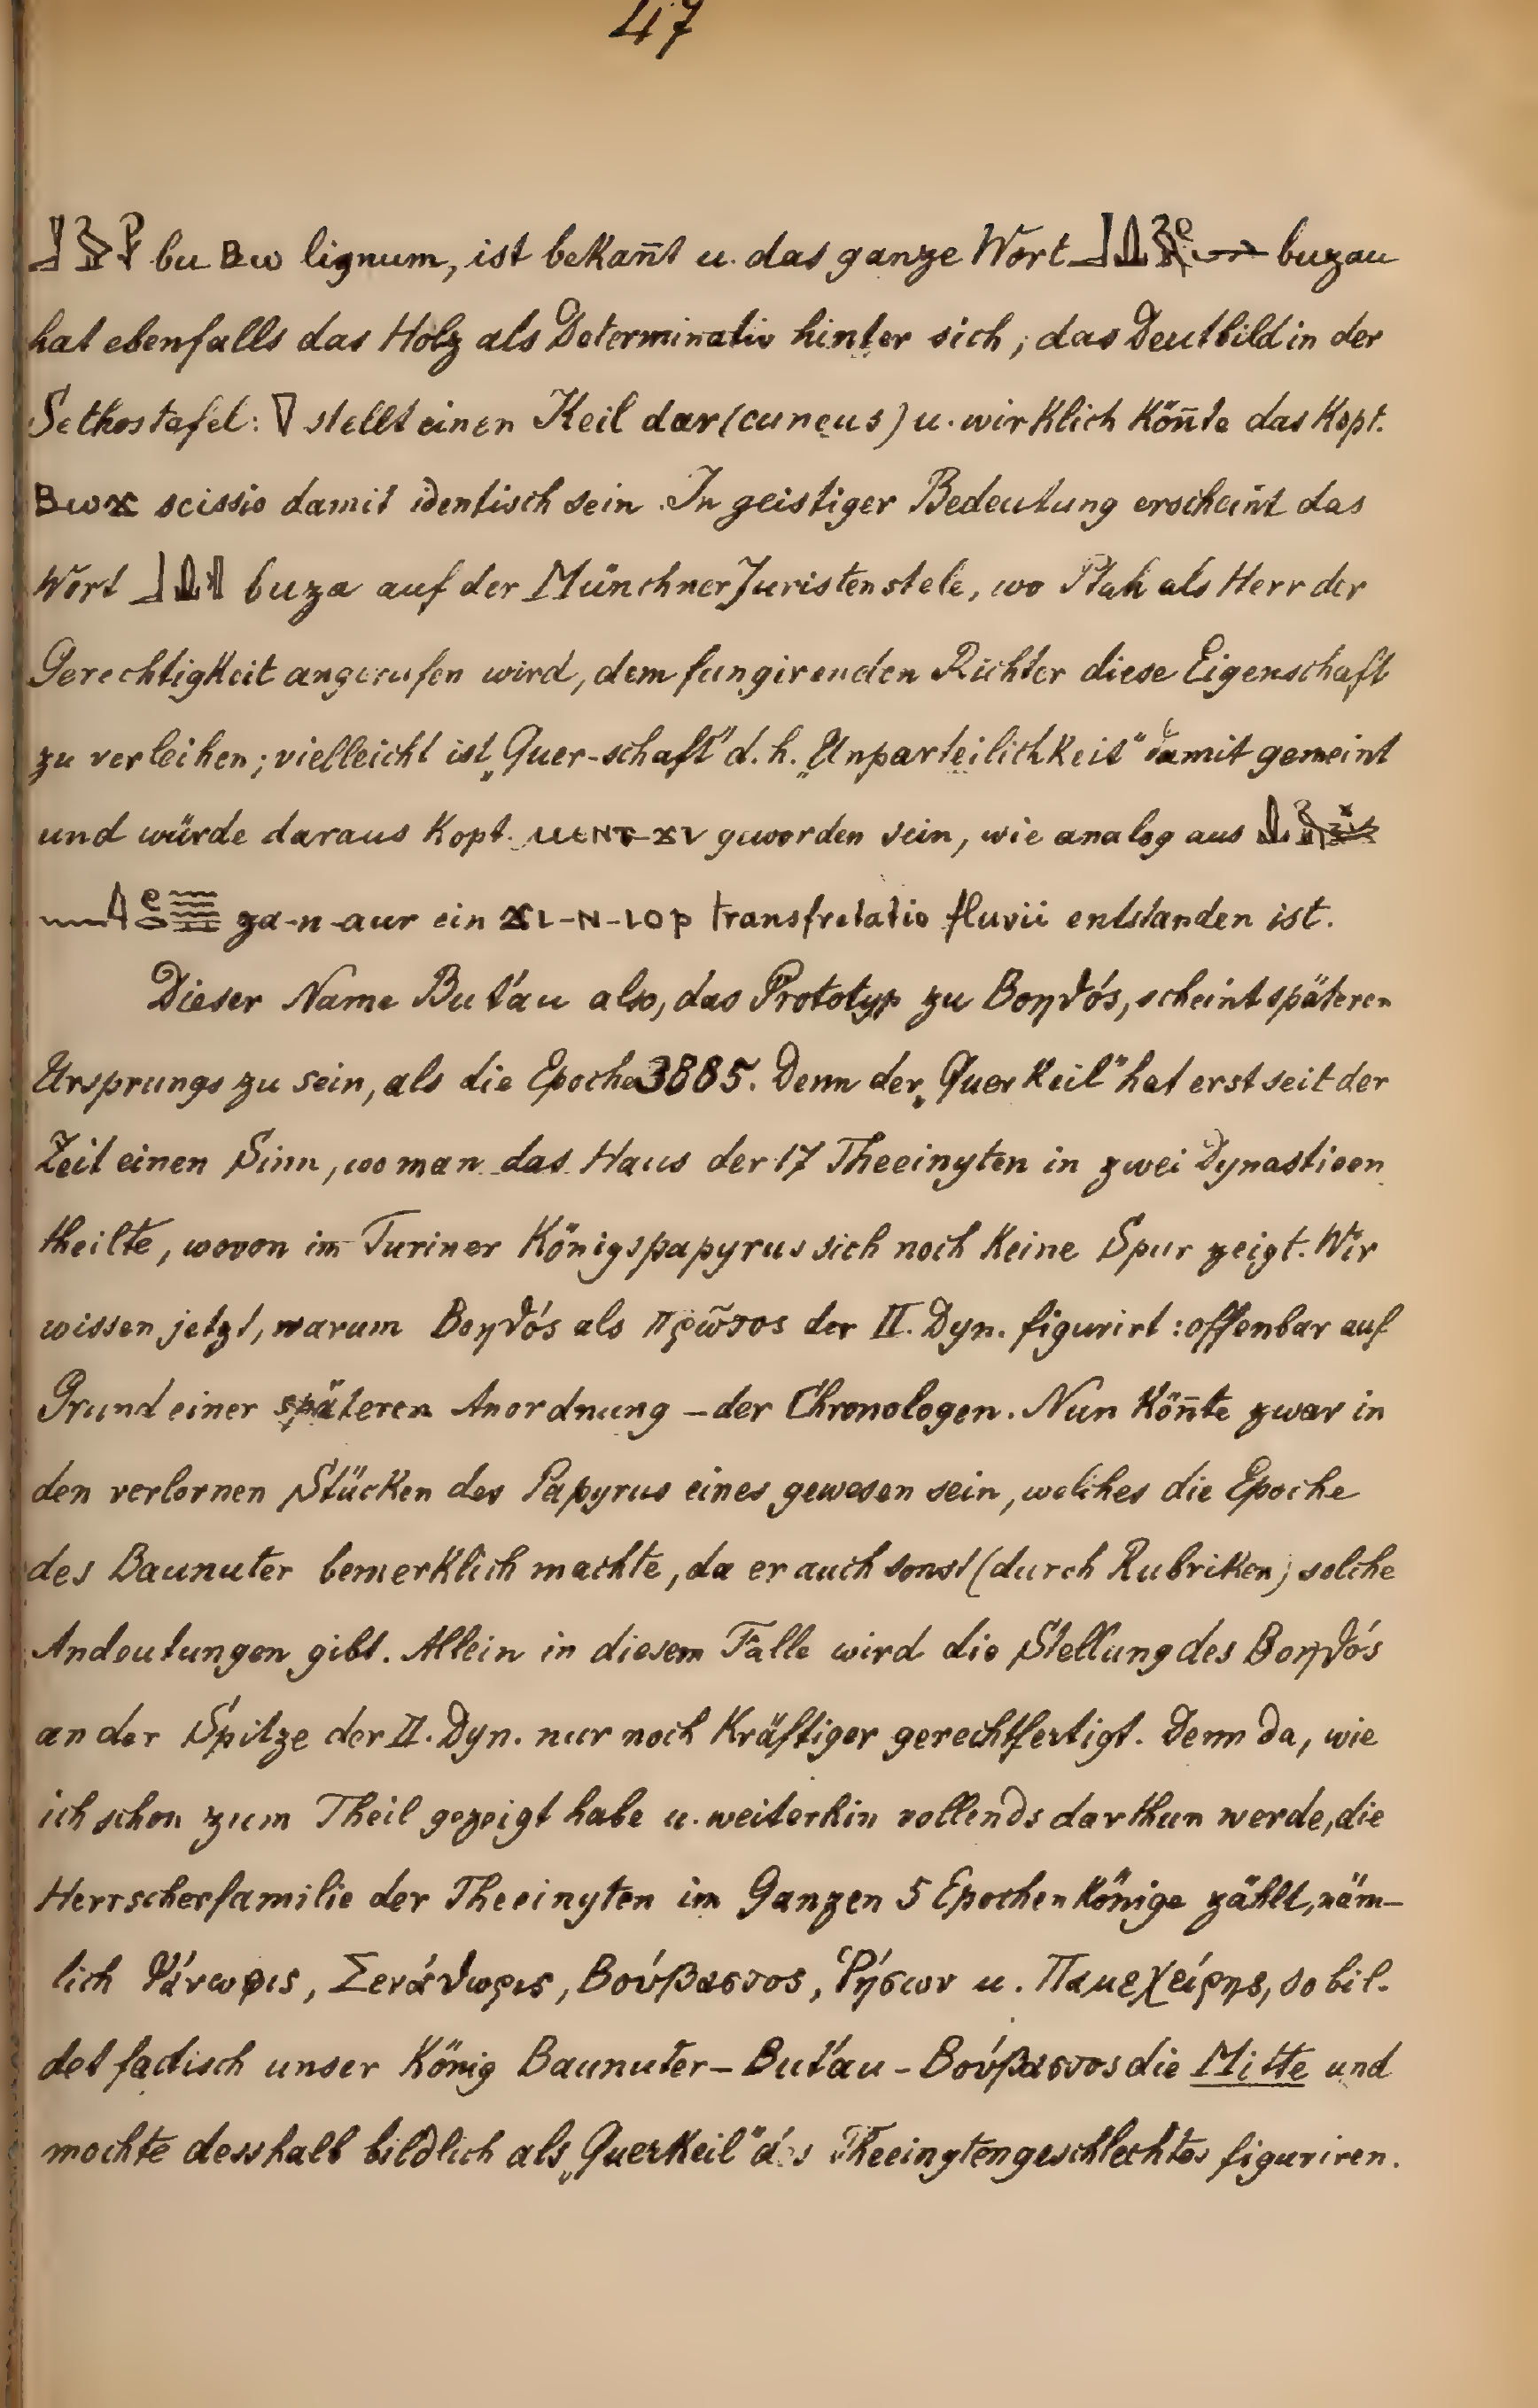 47
bu Bω lignum, ist bekan̄t u. das ganze Wort buzau
hat ebenfalls das Holz als Determinativ hinter sich; das Deutbild in der
Sethostafel: ▽ stellt einen Keil dar (cuneus) u. wirklich kön̄te das kopt.
Bωϫ scissio damit identisch sein. In geistiger Bedeutung erscheint das
Wort buza auf der Münchner Juristenstele, wo Ptah als Herr der
Gerechtigkeit angerufen wird, dem fungirenden Richter diese Eigenschaft
zu verleihen; vielleicht ist „Quer-schaft" d. h. „Unparteilichkeit" damit gemeint
und würde daraus kopt. geworden sein, wie analog aus
za-n-aur ein ϫι-ν-ιορ transfretatio fluvii entstanden ist.
Dieser Name But́au also, das Prototyp zu Βοηθός, scheint späteren
Ursprungs zu sein, als die Epoche 3885. Denn der „Querkeil" hat erst seit der
Zeit einen Sinn, wo man das Haus der 17 Theeinyten in zwei Dynastieen
theilte, wovon im Turiner Königspapyrus sich noch keine Spur zeigt. Wir
wissen jetzt, warum Βοηθός als πρῶτος der II. Dyn. figurirt: offenbar auf
Grund einer späteren Anordnung – der Chronologen. Nun kön̄te zwar in
den verlornen Stücken des Papyrus eines gewesen sein, welches die Epoche
des Baunuter bemerklich machte, da er auch sonst (durch Rubriken) solche
Andeutungen gibt. Allein in diesem Falle wird die Stellung des Βοηθός
an der Spitze der II. Dyn. nur noch kräftiger gerechtfertigt. Denn da, wie
ich schon zum Theil gezeigt habe u. weiterhin vollends darthun werde, die
Herrscherfamilie der Theeinyten im Ganzen 5 Epochenkönige zählt, näm-
lich Σενάθωρις, Βούβαστος, Ῥήσιων u. Παμεχείρης, so bil-
det factisch unser König Baunuter – But́au – Βούβαστος die Mitte und
mochte desshalb bildlich als „Querkeil" des Theeinytengeschlechtes figuriren.